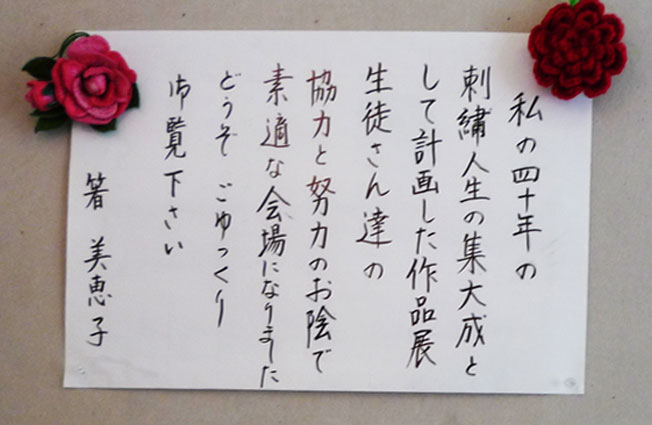 私の四十年の
刺繍人生の集大成と
して計画した作品展
生徒さん達の
協力と努力のお陰で
素適な会場になりました
どうぞごゆっくり
御覧下さい
箸 美恵子